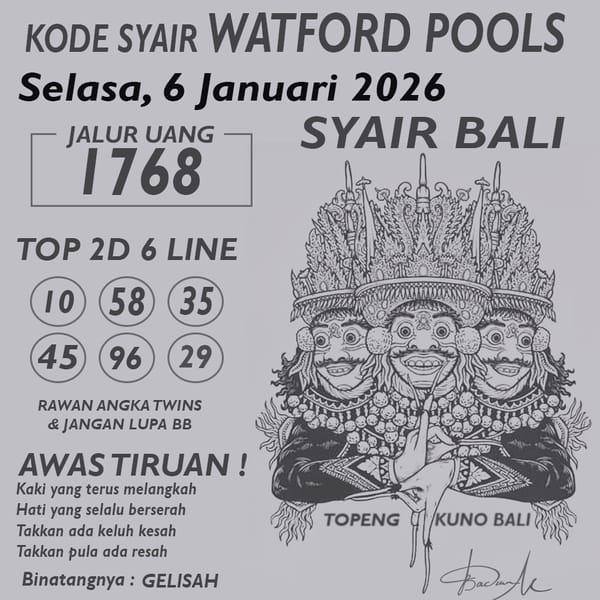 KODE SYAIR WATFORD POOLS
Selasa, 6 Januari 2026
JALUR UANG
1768
SYAIR BALI
TOP 2D 6 LINE
10 58 35
45 96 29
RAWAN ANGKA TWINS
& JANGAN LUPA BB
AWAS TIRUAN !
Kaki yang terus melangkah
Hati yang selalu berserah
Takkan ada keluh kesah
Takkan pula ada resah
Binatangnya : GELISAH
TOPENG KUNO BALI